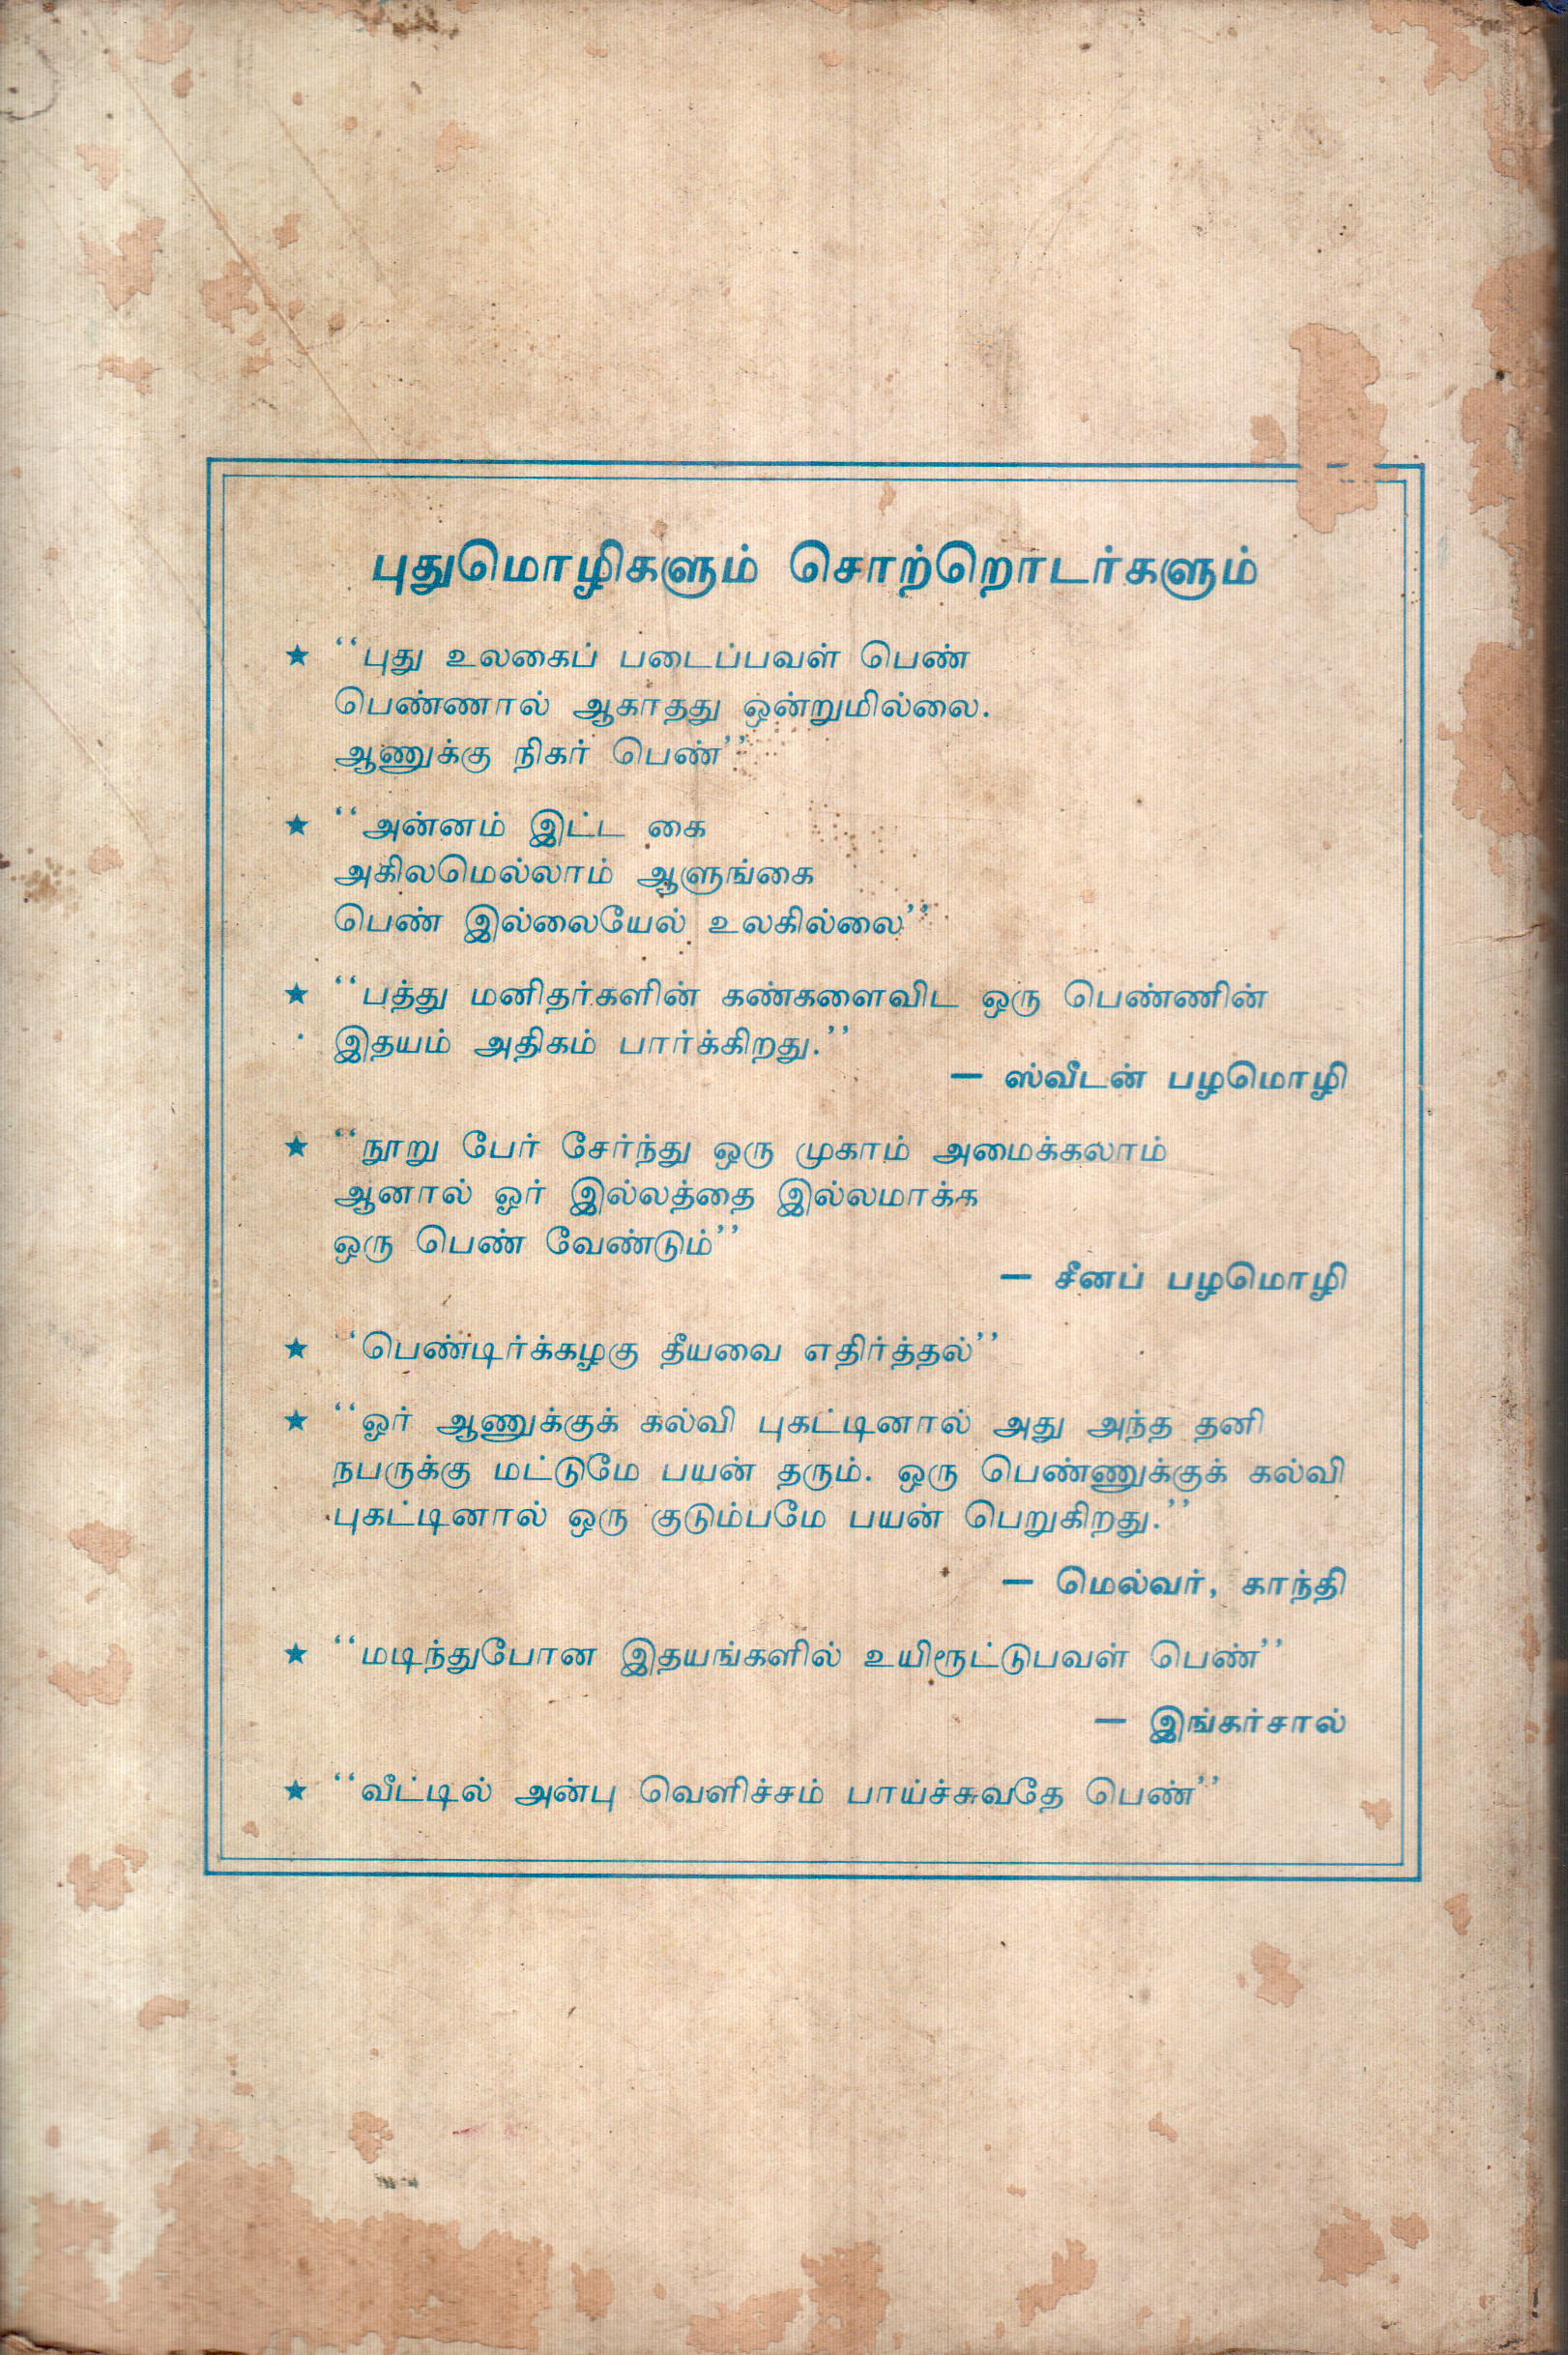 புதுமொழிகளும் சொற்றொடர்களும்
★ ‘‘புது உலகைப் படைப்பவள் பெண்
பெண்ணால் ஆகாதது ஒன்றுமில்லை.
ஆணுக்கு நிகர் பெண்’’
★ ‘‘அன்னம் இட்ட கை
அகிலமெல்லாம் ஆளுங்கை
பெண் இல்லையேல் உலகில்லை’’
★ ‘‘பத்து மனிதர்களின் கண்களைவிட ஒரு பெண்ணின்
இதயம் அதிகம் பார்க்கிறது.’’
— ஸ்வீடன் பழமொழி
★ ‘‘நூறு பேர் சேர்ந்து ஒரு முகாம் அமைக்கலாம்
ஆனால் ஓர் இல்லத்தை இல்லமாக்க
ஒரு பெண் வேண்டும்’’
— சீனப் பழமொழி
★ ‘‘பெண்டிர்க்கழகு தீயவை எதிர்த்தல்’’
★ ‘‘ஓர் ஆணுக்குக் கல்வி புகட்டினால் அது அந்த தனி
நபருக்கு மட்டுமே பயன் தரும். ஒரு பெண்ணுக்குக் கல்வி
புகட்டினால் ஒரு குடும்பமே பயன் பெறுகிறது.’’
— மெல்வர், காந்தி
★ ‘‘மடிந்துபோன இதயங்களில் உயிரூட்டுபவள் பெண்’’
— இங்கர்சால்
★ ‘‘வீட்டில் அன்பு வெளிச்சம் பாய்ச்சுவதே பெண்’’